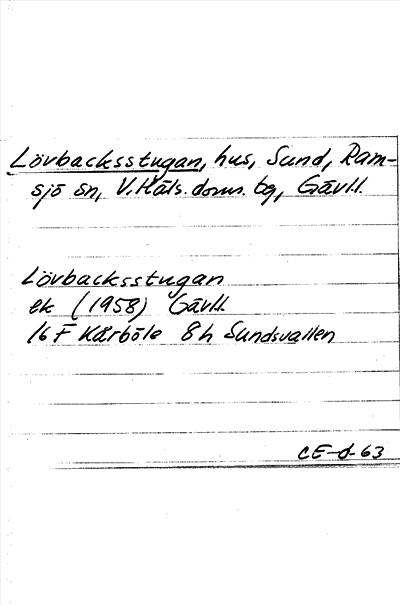 Lövbacksstugan, hus, Sund, Ram-
sjö sn, V. Häls. doms. bg, Gävl.l.
Lövbacksstugan
ek (1958) Gävl.l.
16 F Kårböle 8 h Sundsvallen
CE-d-63